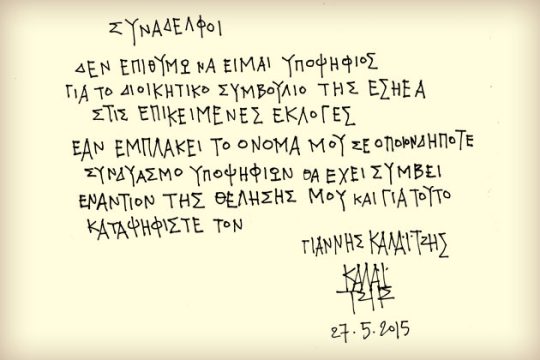 ΣΥΝΑΔΕΛΦΟΙ
ΔΕΝ ΕΠΙΘΥΜΩ ΝΑ ΕΙΜΑΙ ΥΠΟΨΗΦΙΟΣ
ΓΙΑ ΤΟ ΔΙΟΙΚΗΤΙΚΟ ΣΥΜΒΟΥΛΙΟ ΤΗΣ ΕΣΗΕΑ
ΣΤΙΣ ΕΠΙΚΕΙΜΕΝΕΣ ΕΚΛΟΓΕΣ
ΕΑΝ ΕΜΠΛΑΚΕΙ ΤΟ ΟΝΟΜΑ ΜΟΥ ΣΕ ΟΠΟΙΟΝΔΗΠΟΤΕ
ΣΥΝΔΥΑΣΜΟ ΥΠΟΨΗΦΙΩΝ ΘΑ ΕΧΕΙ ΣΥΜΒΕΙ
ΕΝΑΝΤΙΟΝ ΤΗΣ ΘΕΛΗΣΗΣ ΜΟΥ ΚΑΙ ΓΙΑ ΤΟΥΤΟ
ΚΑΤΑΨΗΦΙΣΤΕ ΤΟΝ
ΓΙΑΝΝΗΣ ΚΑΛΑΪΤΖΗΣ
ΚΑΛΑΪ
ΤΖΗΣ
27.5.2015